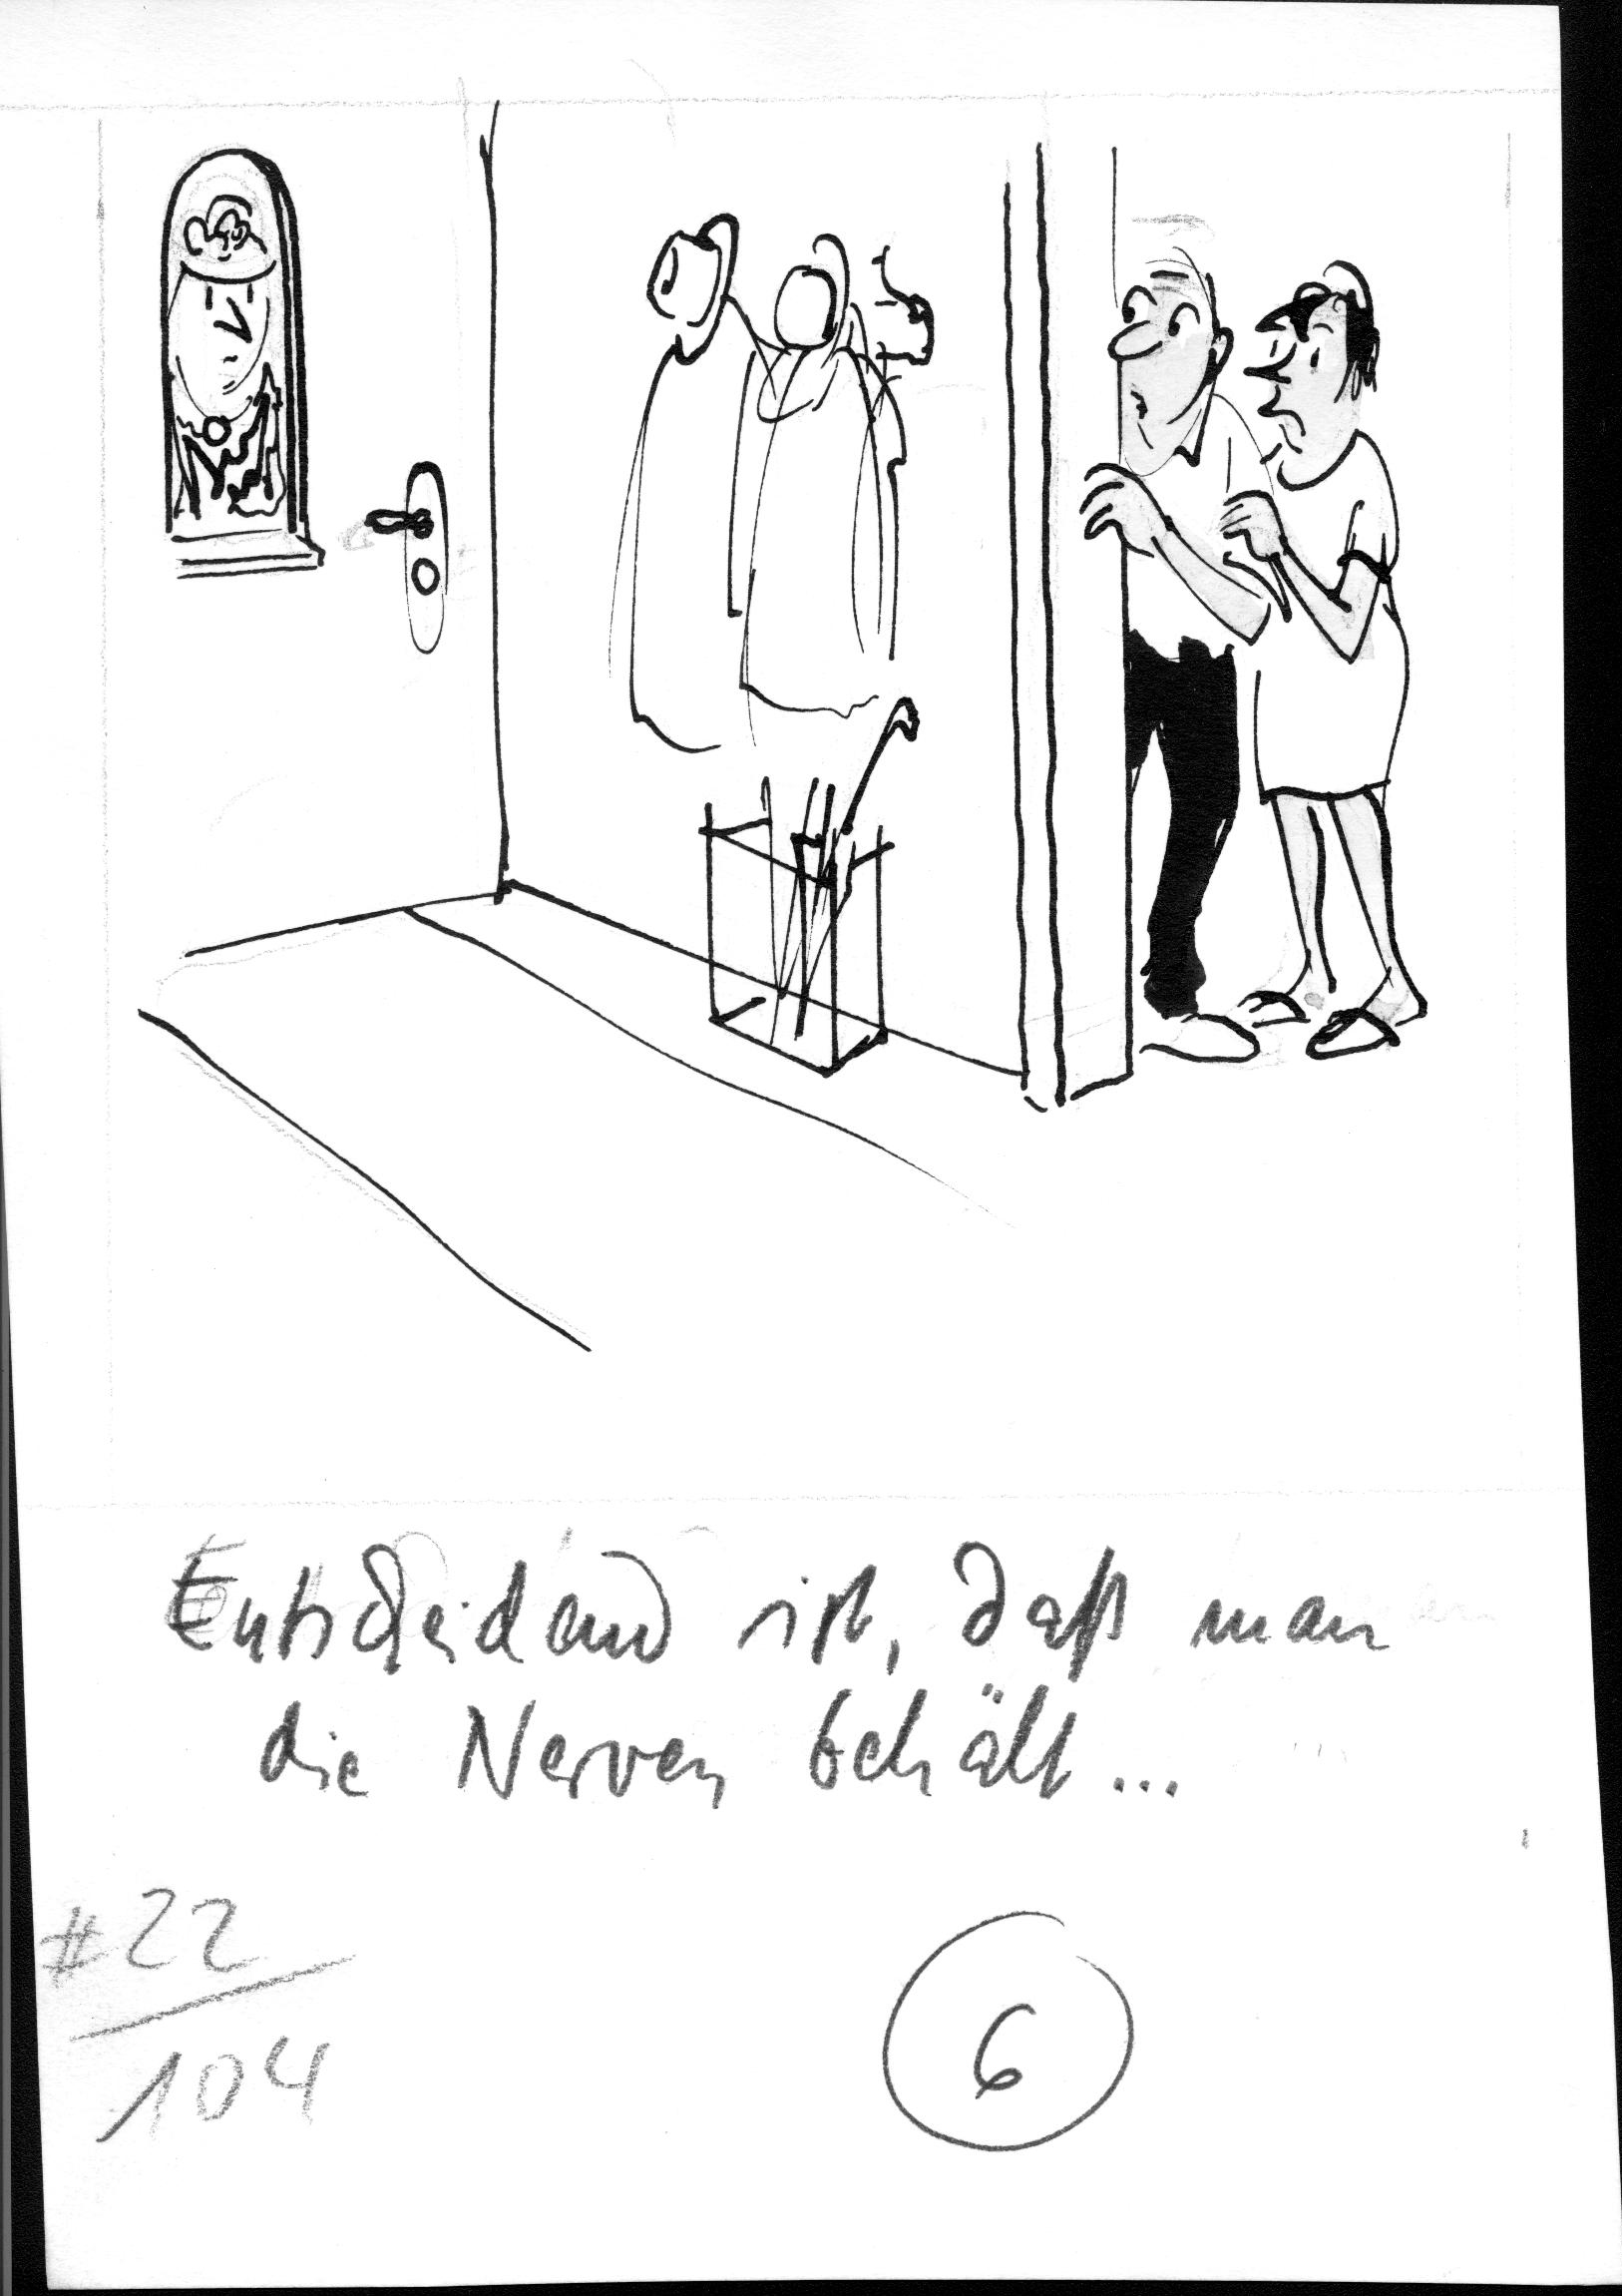 Entscheidend ist, daß man
die Nerven behält...
#22
104
6